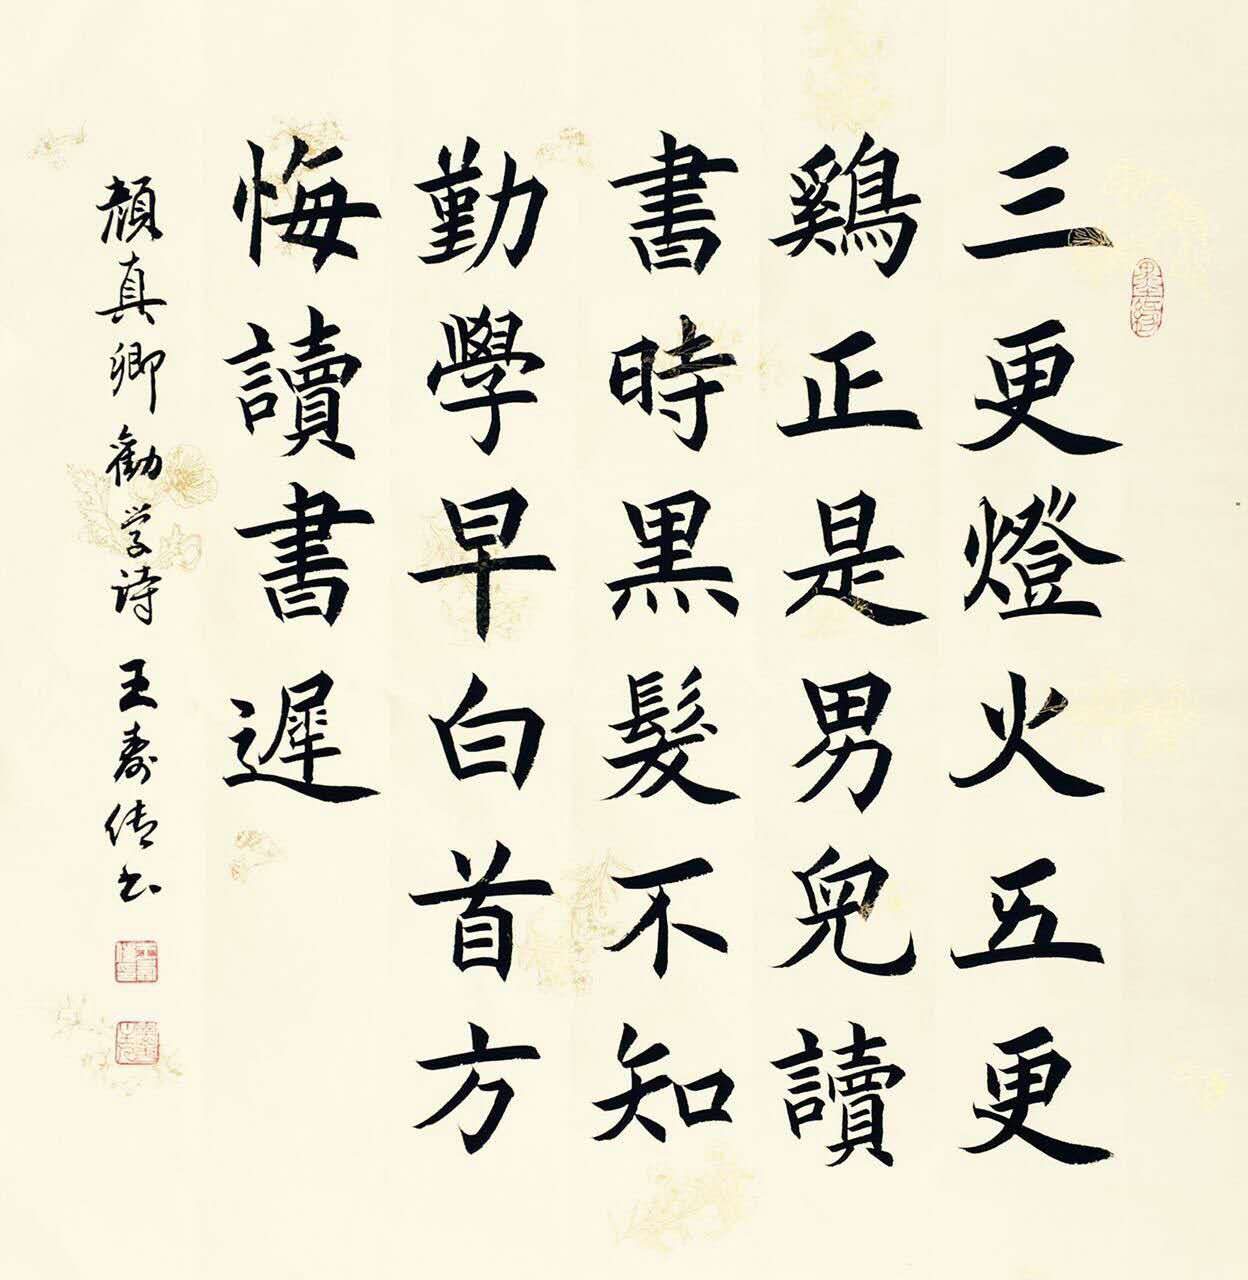 三更燈火五更
鷄正是男兒讀
書時黑髮不知
勤學早白首方
悔讀書遲
顏真卿勸学诗 王寿倩书